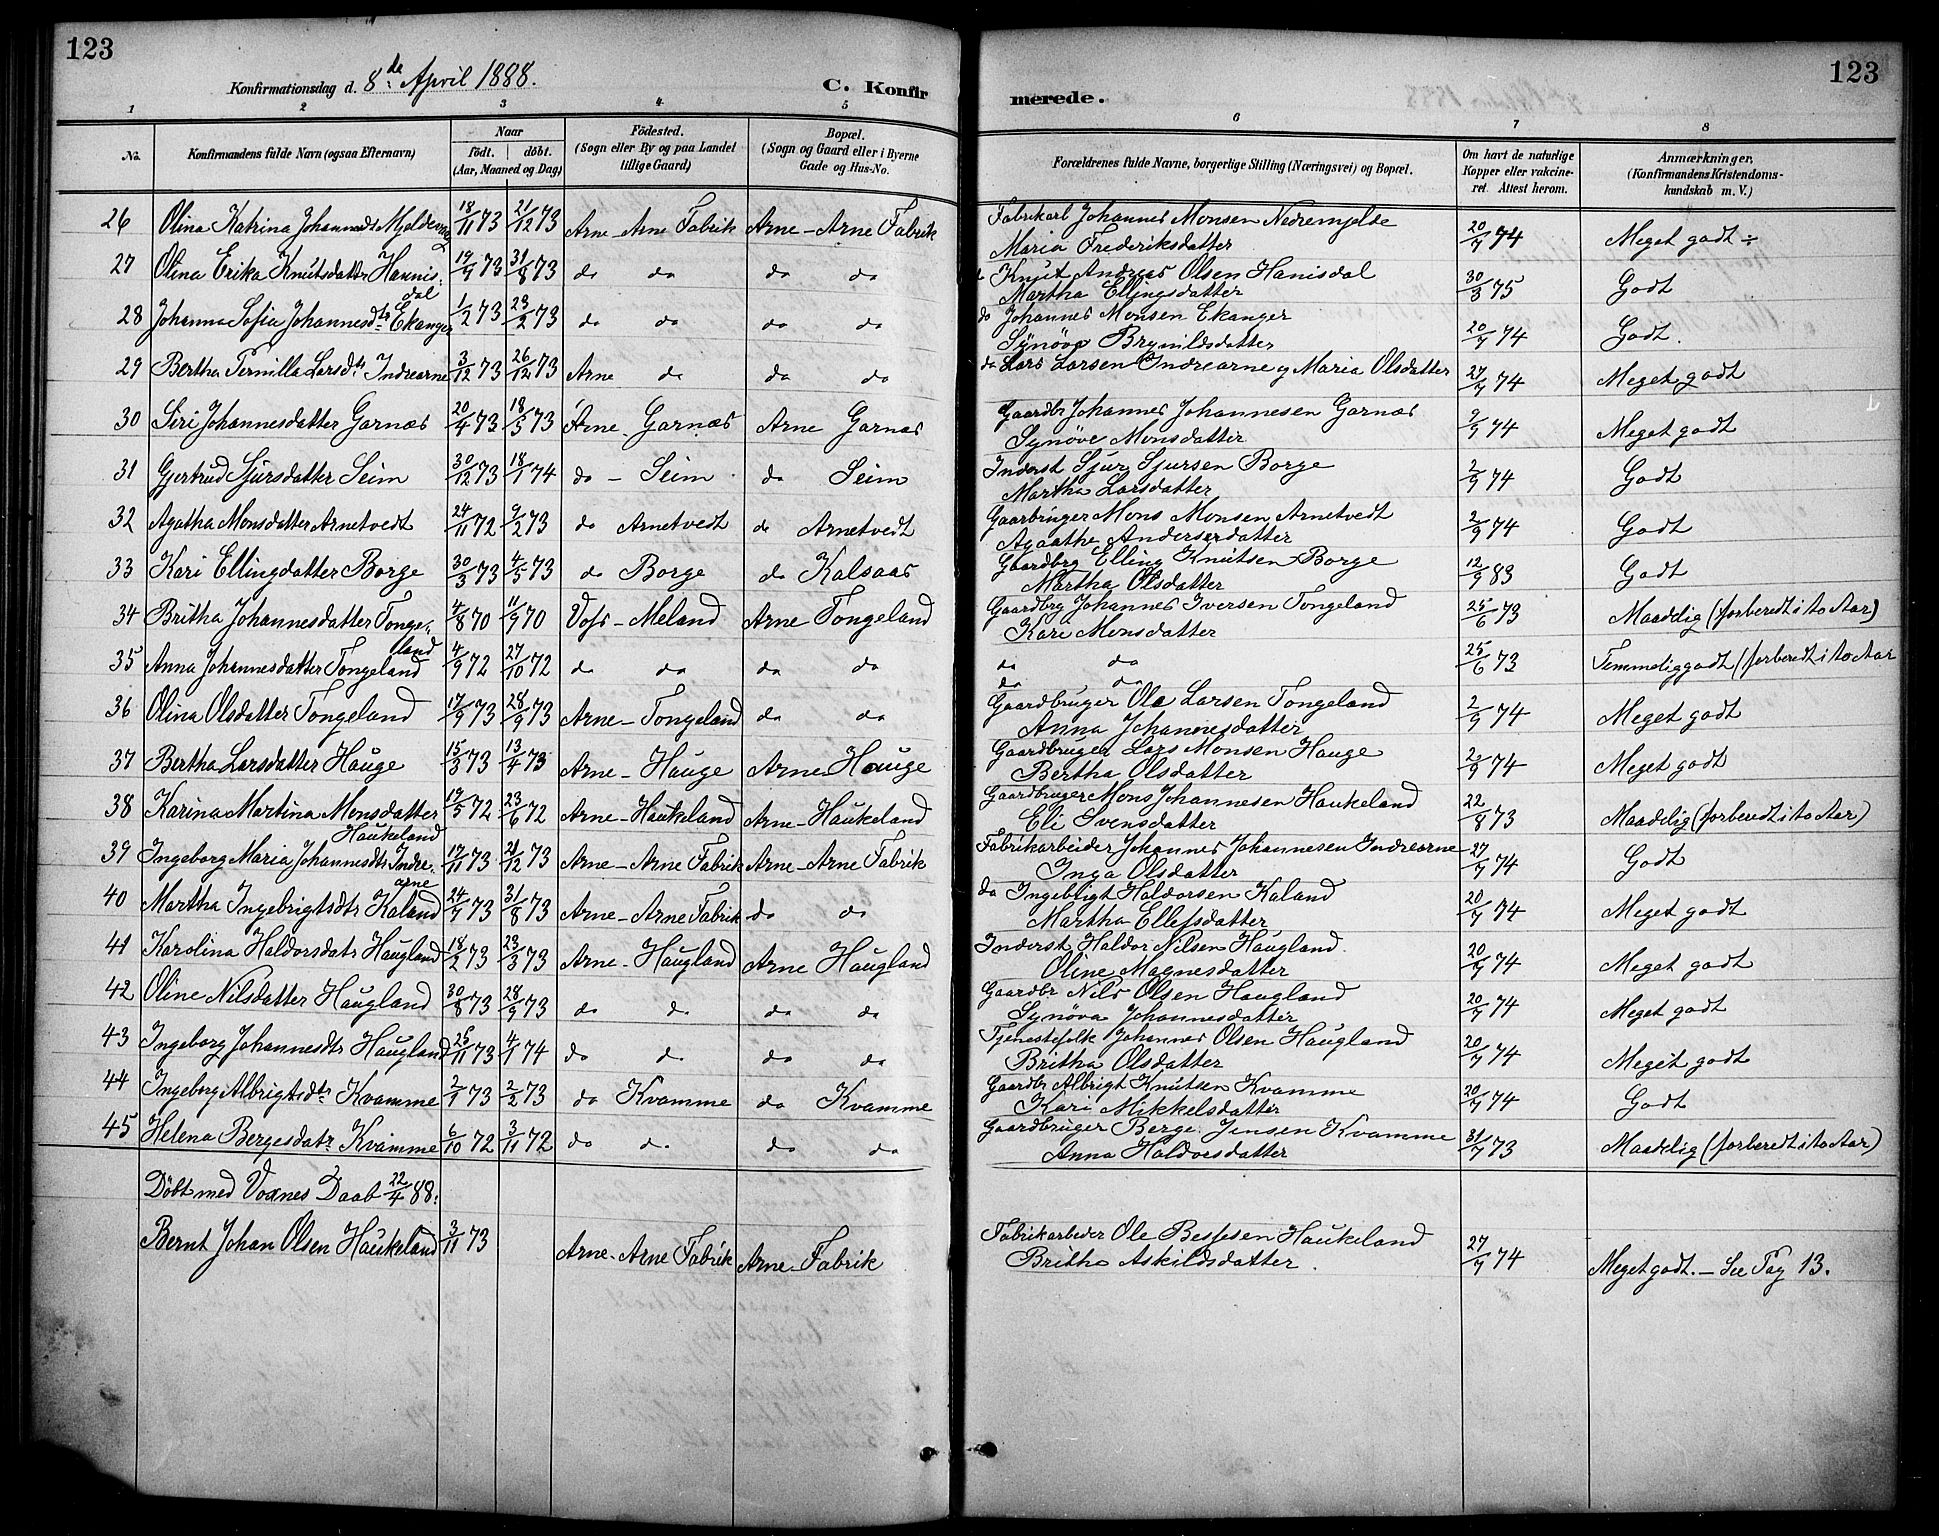 123
Konfirmationsdag d. 8de April 1888.
C. Konfir
1 2 3 4 5
No.
Konfirmandens fulde Navn (ogsaa Efternavn)
Naar
født. døbt.
(Aar, Maaned og Dag)
Födested.
(Sogn eller By og paa Landet
tillige Gaard)
Bopæl.
(Sogn og Gaard eller i Byerne
Gade og Hus-No.
26 Olina Katrina Johannesdtr 18/11 73 21/12 73 Arne - Arne Fabrik Arne - Arne Fabrik
27 Olina Erika Knutsdatter Hannis- 19/7 73 31/8 73 do do do do
dal
28 Johanna Sofia Johannesdtr Ekanger 1/2 73 23/2 73 do do do do
29 Bertha Pernilla Larsdtr Indrearne 3/12 73 26/12 73 Arne do do do
30 Siri Johannesdatter Garnæs 20/4 73 18/5 73 Arne Garnæs Arne Garnæs
31 Gjertrud Sjursdatter Seim 30/12 73 18/1 74 do - Seim do Seim
32 Agatha Monsdatter Arnetvedt 24/11 72 9/2 73 do Arnetvedt do Arnetvedt
33 Kari Ellingdatter Borge 30/3 73 4/5 73 do Borge do Kalsaas
34 Britha Johannesdatter Tonge- 4/8 70 11/9 70 Voss - Meland Arne Tongeland
land
35 Anna Johannesdatter Tongeland 4/9 72 27/10 72 do do do do
36 Olina Olsdatter Tongeland 17/9 73 28/9 73 Arne - Tongeland do do
37 Bertha Larsdatter Hauge 15/3 73 13/4 73 Arne - Hauge Arne Hauge
38 Karina Martina Monsdatter 19/5 72 23/6 72 Arne - Haukeland Arne - Haukeland
Haukeland
39 Ingeborg Maria Johannesdtr Indre- 17/11 73 21/12 73 Arne - Arne Fabrik Arne - Arne Fabrik
arne
40 Martha Ingebrigtsdtr Kaland 24/7 73 31/8 73 Arne - Arne Fabrik do do
41 Karolina Haldorsdatr Haugland 18/2 73 23/3 73 Arne - Haugland Arne Haugland
42 Oline Nilsdatter Haugland 30/8 73 28/9 73 do do do do
43 Ingeborg Johannesdtr Haugland 25/11 73 4/1 74 do do do do
44 Ingeborg Albrigtsdtr Kvamme 2/1 73 2/2 73 do Kvamme do Kvamme
45 Helena Bergesdatr Kvamme 6/10 72 3/11 72 do do do do
Döbt med Voxnes Daab 22/4 88.
Bernt Johan Olsen Haukeland 3/11 73 Arne - Arne Fabrik Arne Fabrik
merede.
123
6 7 8
Forældrenes fulde Navne, borgerlige Stilling (Næringsvei) og Bopæl.
Om havt de naturlige
Kopper eller vakcine-
ret. Attest herom.
Anmærkninger,
(Konfirmandens Kristendoms-
kundskab m. V.)
Fabrikarb Johannes Monsen Nedremjelde
Maria Frederiksdatter 20/7 74 Meget godt ÷
do Knut Andreas Olsen Hanisdal
Martha Ellingsdatter 30/3 75 Godt
do Johannes Monsen Ekanger
Synöve Brynildsdatter 20/7 74 Godt.
do Lars Larsen Indrearne og Maria Olsdatter 27/7 74 Meget godt
Gaardbr Johannes Johannesen Garnæs
Synöve Monsdatter 2/9 74 Meget godt
Inderst Sjur Sjursen Borge
Martha Larsdatter 2/9 74 Godt
Gaarbruger Mons Monsen Arnetvedt
Agathe Andersdatter 2/9 74 Godt
Gaardbrg Elling Knutsen Borge
Martha Olsdatter 12/9 83 Godt
Gaardbrg Johannes Iversen Tongeland
Kari Monsdatter 25/6 73 Maadelig (forberedt i to Aar)
do do 25/6 73 Temmeliggodt (forberedt i to Aar
do do
Gaardbruger Ole Larsen Tongeland
Anna Johannesdatter 2/9 74 Meget godt
Gaardbruger Lars Monsen Hauge
Bertha Olsdatter 2/9 74 Meget godt
Gaardbruger Mons Johannesen Haukeland
Eli Ivensdatter 22/8 73 Maadelig (forberedt i to Aar)
Fabrikarbeider Johannes Johannesen Indrearne
Inga Olsdatter 27/7 74 Godt
do Ingebrigt Haldorsen Kaland
Martha Ellefsdatter 20/7 74 Meget godt
Inderst Haldor Nilsen Haugland
Oline Magnesdatter 20/7 74 Meget godt
Gaardbr Nils Olsen Haugland
Synöva Johannesdatter 20/7 74 Meget godt
Tjenestefolk Johannes Olsen Haugland
Britha Olsdatter 20/7 74 Meget godt
Gaardbr Albrigt Knutsen Kvamme
Kari Mikkelsdatter 20/7 74 Godt
Gaardbruger Berge Jensen Kvamme
Anna Haldorsdatter 31/7 73 Maadelig (forberedt i to Aar)
Fabrikarbeider Ole Bessesen Haukeland
Britha Askildsdatter. 27/7 74 Meget godt. - See Pag 13.